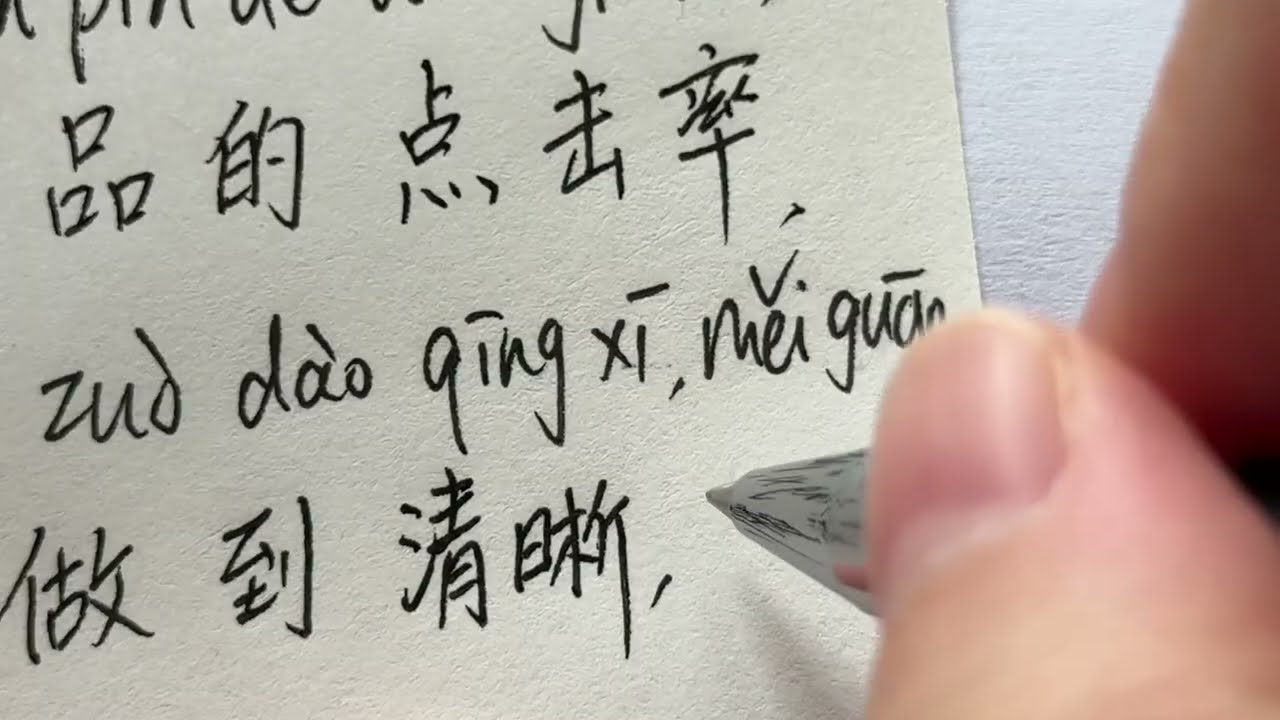 pin de
品的点击率,
zuò dào qīng xī, měi guān
做到清晰,